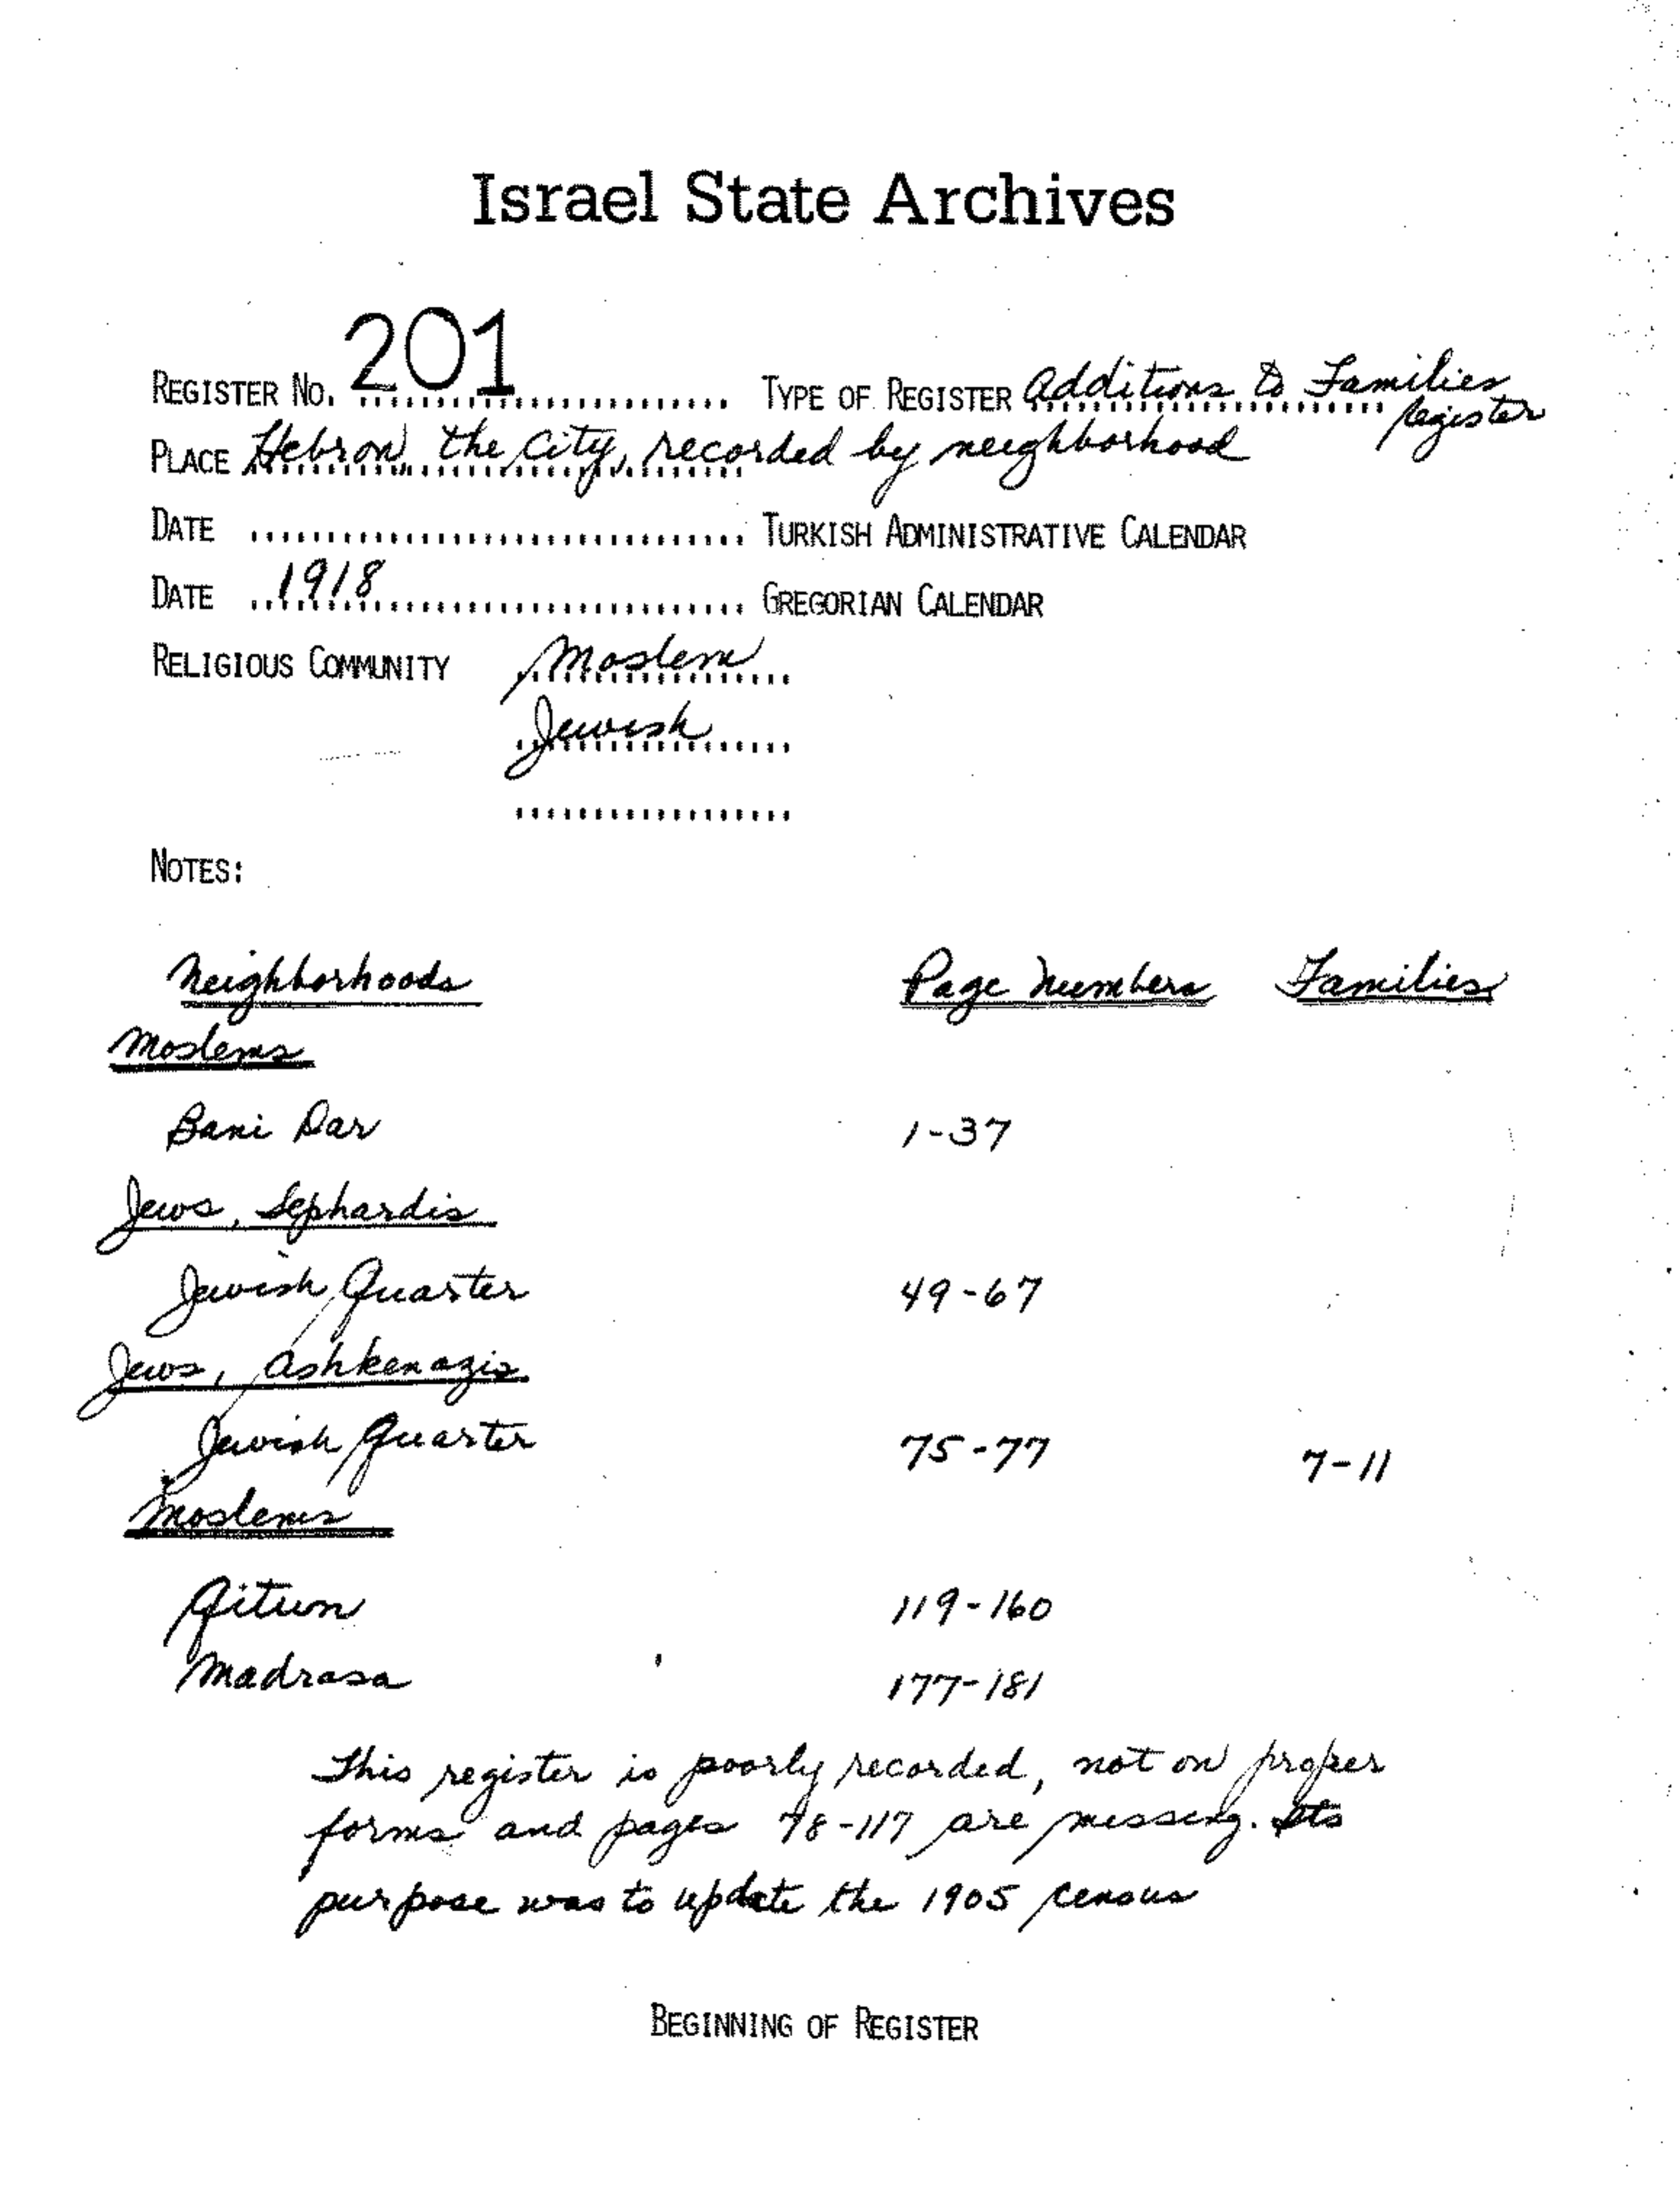 Israel State Archives
REGISTER No. 201 TYPE OF REGISTER Additions to Families
register
PLACE Hebron, the City, recorded by neighborhood
DATE TURKISH ADMINISTRATIVE CALENDAR
DATE 1918 GREGORIAN CALENDAR
RELIGIOUS COMMUNITY Moslem
Jewish
NOTES:
Neighborhoods Page Numbers Families
Moslems
Bani Dar 1-37
Jews, Sephardis
Jewish Quarter 49-67
Jews, Ashkenazis
Jewish Quarter 75-77 7-11
Moslems
Qitun 119-160
Madrasa 177-181
This register is poorly recorded, not on proper
forms and pages 78-117 are missing. Its
purpose was to update the 1905 census
BEGINNING OF REGISTER